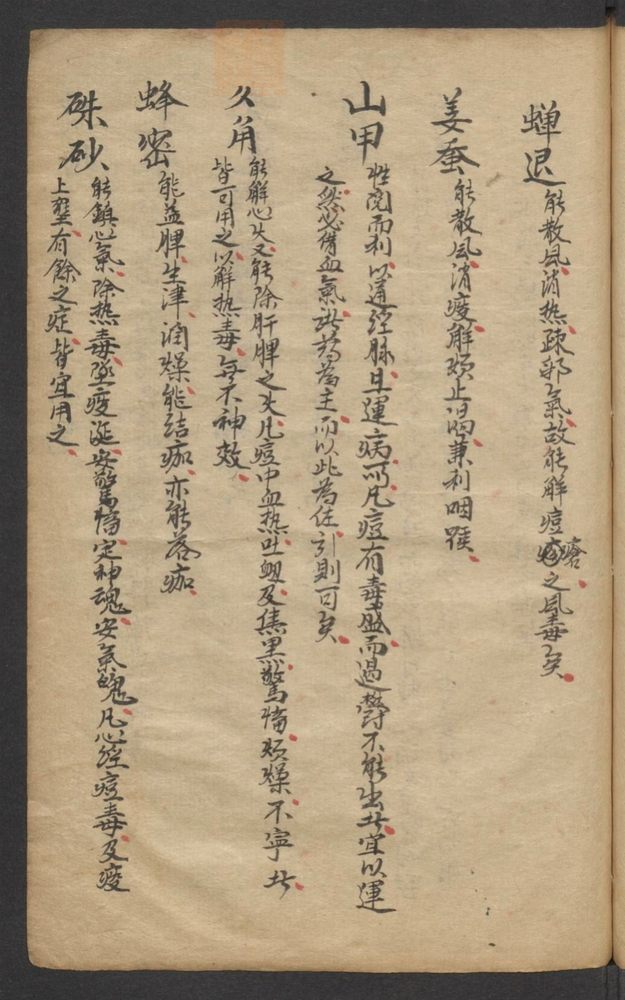 蟬退 能散风消热疎邪氣故能解痘瘡之风毒矣
姜蚕 能散风消痰解煩止渴兼利咽喉
山甲 性窽而利以通经脉且運病所凡痘有毒盛而過鬱不能出者宜以運
之然必借血氣藥為主而以此為佐引則可矣
犀角 能解心火又能除肝脾之火凡痘中血热吐衄及焦黑驚悸煩燥不寧者
皆可用之以解热毒無不神效
蜂密 能益脾生津潤燥能结痂亦能落痂
硃砂 能鎮心氣除热毒墜痰涎安驚悸定神魂安氣魄凡心经痘毒及痰
上壅有餘之症皆宜用之